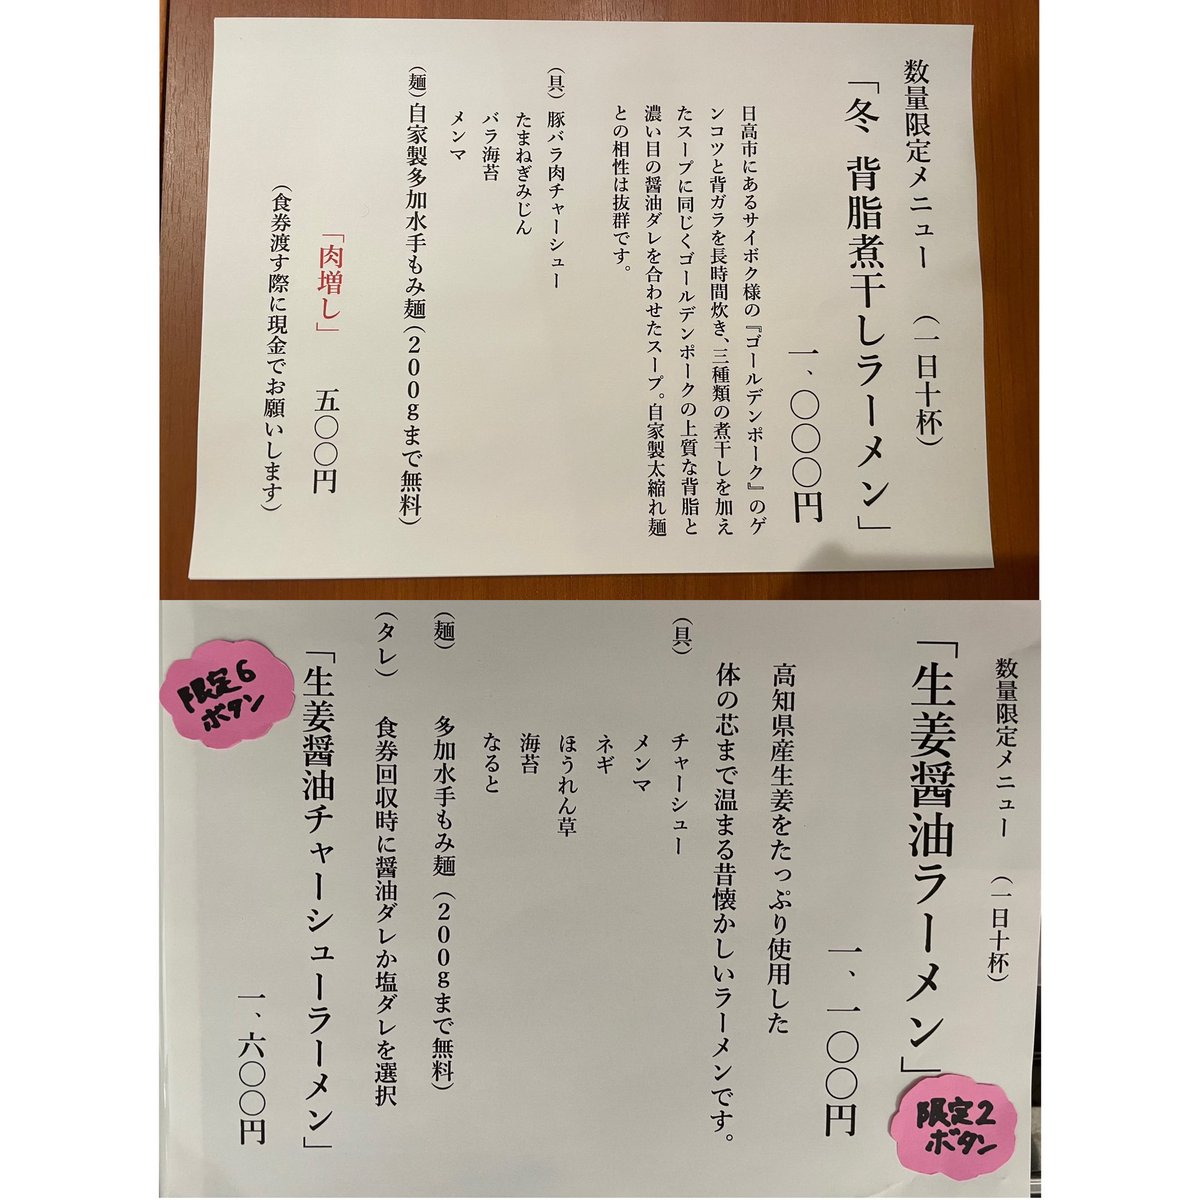 数量限定メニュー　（一日十杯）
「冬 背脂煮干しラーメン」
一、〇〇〇円
日高市にあるサイボク様の『ゴールデンポーク』のゲ
ンコツと背ガラを長時間炊き、三種類の煮干しを加え
たスープに同じくゴールデンポークの上質な背脂と
濃い目の醤油ダレを合わせたスープ。自家製太縮れ麺
との相性は抜群です。
（具）豚バラ肉チャーシュー
たまねぎみじん
バラ海苔
メンマ
（麺）自家製多加水手もみ麺（200gまで無料）
「肉増し」　五〇〇円
（食券渡す際に現金でお願いします）
数量限定メニュー　（一日十杯）
「生姜醤油ラーメン」
限定2
ボタン
一、一〇〇円
高知県産生姜をたっぷり使用した
体の芯まで温まる昔懐かしいラーメンです。
（具）　チャーシュー
メンマ
ネギ
ほうれん草
海苔
なると
（麺）　多加水手もみ麺（200gまで無料）
（タレ）　食券回収時に醤油ダレか塩ダレを選択
「生姜醤油チャーシューラーメン」
限定6
ボタン
一、六〇〇円